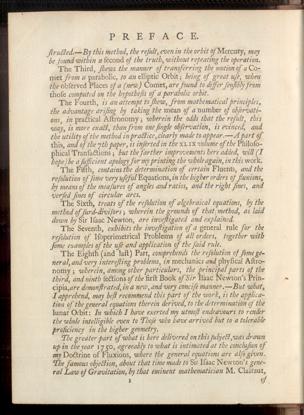 PREFACE.
structed.—By this method, the result, even in the orbit of Mercury, may
be found within a second of the truth, without repeating the operation.
The Third, shews the manner of transferring the motion of a Co-
met from a parabolic, to an elliptic Orbit; being of great use, when
the observed Places of a (new) Comet, are found to differ sensibly from
those computed on the hypothesis of a parabolic orbit.
The Fourth, is an attempt to shew, from mathematical principles,
the advantage arising by taking the mean of a number of observati-
ons, in practical Astronomy; wherein the odds that the result, this
way, is more exact, than from one single observation, is evinced, and
the utility of the method in practice, clearly made to appear.—A part of
this, and of the 7th paper, is inserted in the XLIX volume of the Philoso-
phical Transactions; but the farther improvements here added, will (I
hope) be a sufficient apology for my printing the whole again, in this work.
The Fifth, contains the determination of certain Fluents, and the
resolution of some very useful Equations, in the higher orders of fluxions,
by means of the measures of angles and ratios, and the right sines, and
versed sines of circular arcs.
The Sixth, treats of the resolution of algebraical equations, by the
method of surd-divisors; wherein the grounds of that method, as laid
down by Sir Isaac Newton, are investigated and explained.
The Seventh, exhibits the investigation of a general rule for the
resolution of Isoperimetrical Problems of all orders, together with
some examples of the use and application of the said rule.
The Eighth (and last) Part, comprehends the resolution of some ge-
neral, and very interesting problems, in mechanics and physical Astro-
nomy; wherein, among other particulars, the principal parts of the
third, and ninth sections of the first Book of Sir Isaac Newton's Prin-
cipia, are demonstrated, in a new, and very concise manner.—But what,
I apprehend, may best recommend this part of the work, is the applica-
tion of the general equations therein derived, to the determination of the
lunar Orbit: In which I have exerted my utmost endeavours to render
the whole intelligible even to Those who have arrived but to a tolerable
proficiency in the higher geometry.
The greater part of what is here delivered on this subject, was drawn
up in the year 1750, agreeably to what is intimated at the conclusion of
my Doctrine of Fluxions, where the general equations are also given.
The famous objection, about that time made to Sir Isaac Newton's gene-
ral Law of Gravitation, by that eminent mathematician M. Clairaut,
of